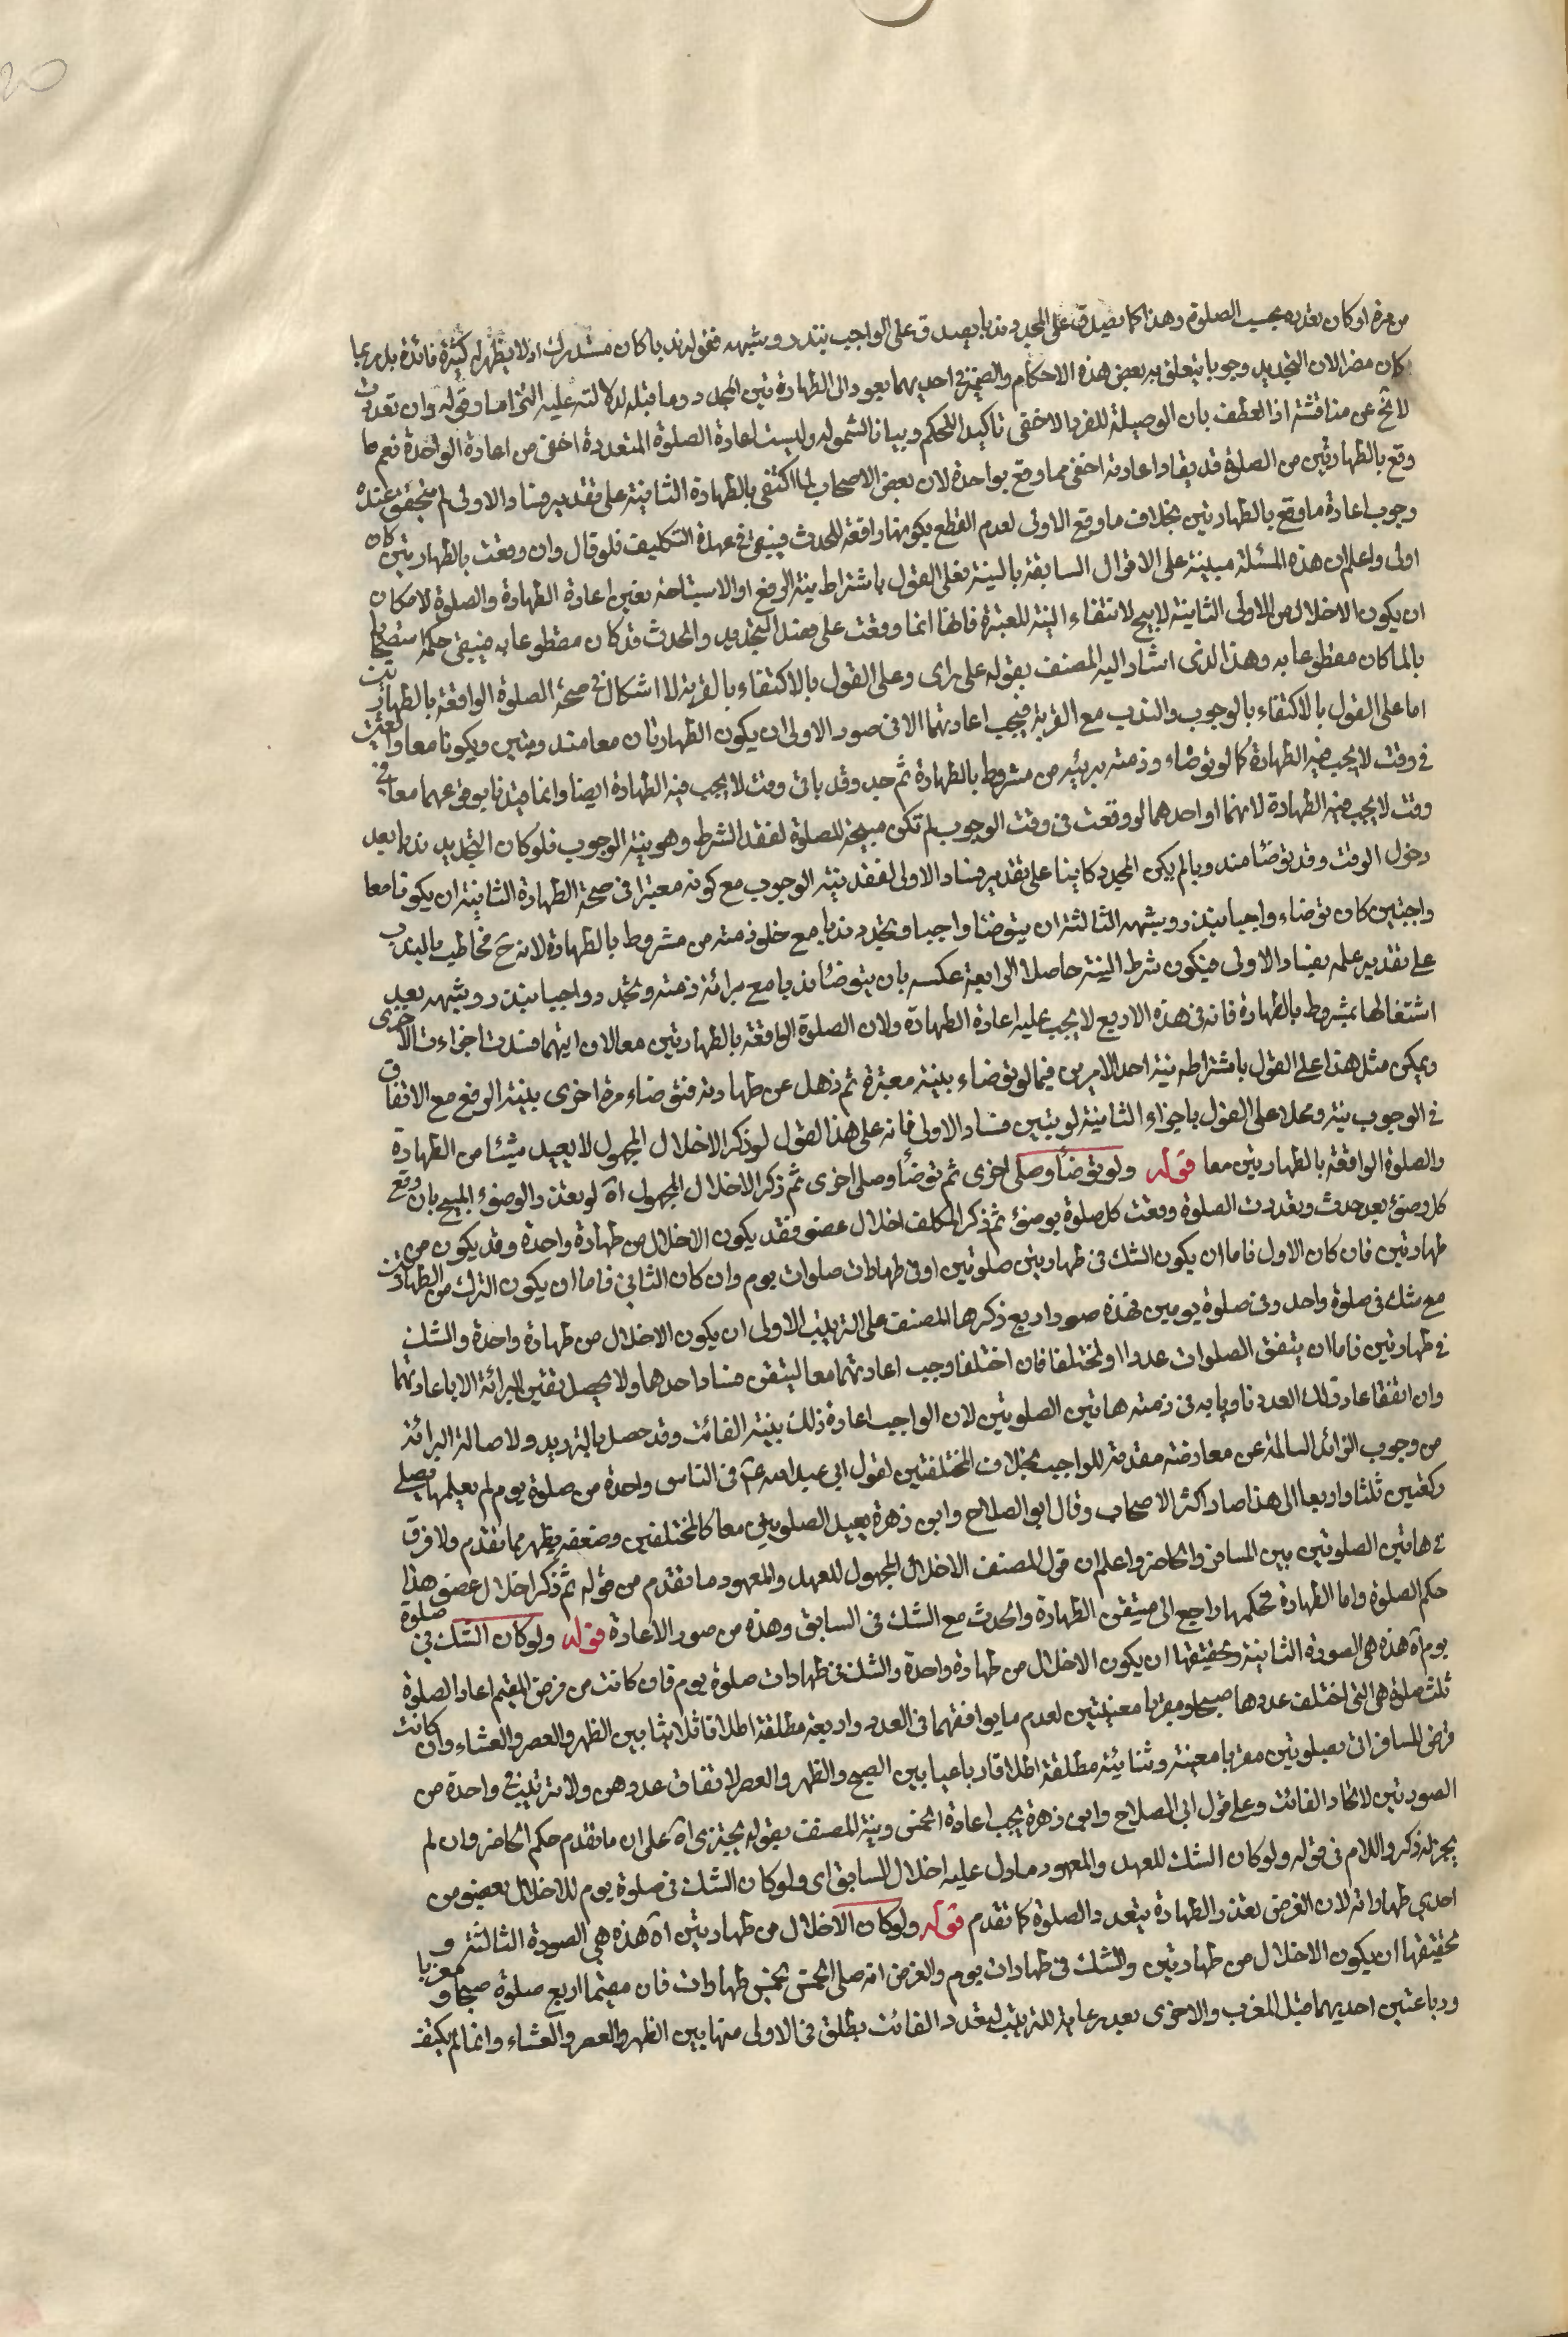 من مرة او كان بعد به بحسب الصلوة وهذا كما يصدق على المجدد ندبا يصدق على الواجب بنذر وشبهه فقوله ندبا كان مستدرك اذ لا يظهر له كثيرة فائدة بل ربما
كان مضرا لان التجديد وجوبا يتعلق به بعض هذه الاحكام والضمير في احديهما يعود الى الطهارة بين المجدد وما قبله لدلالته عليه التزاما وقوله وان تعددت
لا يخ عن مناقشة اذ العطف بان الوصلية للفرد الاخفى تاكيدا للحكم وبيانا لشموله وليست اعادة الصلوة المتعددة اخفى من اعادة الواحدة نعم ما
وقع بالطهارتين من الصلوة قد يقا واعادته اخفى مما وقع بواحدة لان بعض الاصحاب لما اكتفى بالطهارة الثانية على تقدير فساد الاولى لم يتحقق عنده
وجوب اعادة ما وقع بالطهارتين بخلاف ما وقع الاولى لعدم القطع بكونها رافعة للحدث فيبقى في عهدة التكليف فلو قال وان وقعت بالطهارتين كان
اولى واعلم ان هذه المسئلة مبينة على الاقوال السابقة بالنية فعلى القول باشتراط نية الرفع او الاستباحة تعين اعادة الطهارة والصلوة لامكان
ان يكون الاخلال من الاولى الثانية لا يبيح لانتفاء النية المعتبرة فانها انما وقعت على قصد التجديد والحدث قد كان مقطوعا به فيبقى حكمه مستصحبا
بالما كان مقطوعا به وهذا الذى اشار اليه المصنف بقوله على راى وعلى القول بالاكتفاء بالقربة لا اشكال في صحة الصلوة الواقعة بالطهارتين
اما على القول بالاكتفاء بالوجوب والندب مع القربة فيجب اعادتهما الا فى صور الاولى ان يكون الطهارتان معا مندوبتين ويكونا معا واقعتين
في وقت لا يجب فيه الطهارة كما لو توضاء وذمته بريئه من مشروط بالطهارة ثم جدد وقد باتى وقت لا يجب فيه الطهارة ايضا وانما قيدنا بوقوعهما معا في
وقت لا يجب فيه الطهارة لانهما او احدهما لو وقعت فى وقت الوجوب لم تكن مبيحة للصلوة لفقد الشرط وهو نية الوجوب فلو كان التجديد ندبا بعد
دخول الوقت وقد توضأ مندوبا لم يكن المجدد كافيا على تقدير فساد الاولى لفقد نية الوجوب مع كونه معتبرا فى صحة الطهارة الثانية ان يكونا معا
واجبتين كان توضاء واجبا بنذر وشبهه الثالثة ان يتوضأ واجبا ويجدد ندبا مع خلو ذمته من مشروط بالطهارة لانه ح مخاطب بالندب
على تقدير علمه بفساد الاولى فيكون شرط النية حاصلا الرابعة عكسه بان يتوضأ ندبا مع برائة ذمته ويجدد واجبا بنذر وشبهه بعد
اشتغالها بمشروط بالطهارة فانه فى هذه الاربع لا يجب عليه اعادة الطهارة ولان الصلوة الواقعة بالطهارتين معا لان ايتهما فسدت اجزاءت الاخرى
ويمكن مثل هذا على القول باشتراطه نية احد الامرين فيما لو توضاء بنية معتبرة ثم ذهل عن طهارته فتوضاء مرة اخرى بنية الرفع مع الاتفاق
في الوجوب نية ومحلا على القول باجزاء الثانية لو يتبين فساد الاولى فانه على هذا القول لو ذكر الاخلال المجهول لا يعيد شيئا من الطهارة
والصلوة الواقعة بالطهارتين معا قوله ولو توضأ وصلى اخرى ثم توضأ وصلى اخرى ثم ذكر الاخلال المجهول اه لو تعدد الوضوء المبيح بان وقع
كل وضوء بعد حدث وتعددت الصلوة وقعت كل صلوة بوضوء ثم ذكر المكلف اخلال عضو فقد يكون الاخلال من طهارة واحدة وقد يكون من
طهارتين فان كان الاول فاما ان يكون الشك فى طهارتين صلوتين او فى طهارات صلوات يوم وان كان الثاني فاما ان يكون الترك من الطهارتين
مع شك فى صلوة واحد وفى صلوة يومين فهذه صور اربع ذكرها المصنف على الترتيب الاولى ان يكون الاخلال من طهارة واحدة والشك
في طهارتين فاما ان يتفق الصلوات عددا او تختلفا فان اختلفا وجب اعادتهما معا ليتقن فساد احدهما ولا يحصل يقين البرائة الا باعادتهما
وان اتفقا عاد ذلك العدد ناويا به فى ذمته هاتين الصلوتين لان الواجب اعادة ذلك بنية الفائت وقد حصل بالترديد ولاصالة البرائة
من وجوب الزائد السالمة عن معارضة مقدمة للواجب بخلاف المختلفتين لقول ابى عبد الله ع فى الناسى واحدة من صلوة يوم لم يعلمها يصلى
ركعتين ثلثا واربعا الى هذا صار اكثر الاصحاب وقال ابو الصلاح وابن زهرة يعيد الصلوتين معا كالمختلفين وضعفه يظهر مما تقدم ولا فرق
في هاتين الصلوتين بين المسافر والحاضر واعلم ان قول المصنف الاخلال المجهول للعهد والمعهود ما تقدم من قوله ثم ذكر اخلال عضو هذا
حكم الصلوة واما الطهارة فحكمها راجع الى متيقن الطهارة والحدث مع الشك فى السابق وهذه من صور الاعادة قوله ولو كان الشك فى صلوة
يوم اه هذه هى الصورة الثانية وتحقيقها ان يكون الاخلال من طهارة واحدة والشك فى طهارات صلوة يوم فان كانت من فرض المقيم اعاد الصلوة
ثلث صلوة هى التى اختلف عددها صبحا ومغربا معينتين لعدم ما يوافقهما فى العدد واربعة مطلقة اطلاقا ثلاثيا بين الظهر والعصر والعشاء وان كانت
فرض المسافر اتى بصلوتين مغربا معينة وثنائية مطلقة اطلاقا رباعيا بين الصبح والظهر والعصر لاتفاق عددهن ولا ترتيب فى واحدة من
الصورتين لاتحاد الفائت وعلى قول ابى الصلاح وابى زهرة يجب اعادة الخمس ونية المصنف بقوله يجتزى اه على ان ما تقدم حكم الحاضر وان لم
يجز له ذكر واللام فى قوله ولو كان الشك للعهد والمعهود ما دل عليه اخلال السابق اى ولو كان الشك فى صلوة يوم للاخلال بعضو من
احدى طهاراته لان الغرض تعدد الطهارة بتعدد الصلوة كما تقدم قوله ولو كان الاخلال من طهارتين اه هذه هى الصورة الثالثة و
تحقيقها ان يكون الاخلال من طهارتين والشك فى طهارات يوم والغرض انه صلى الخمس بخمس طهارات فان مقيما اربع صلوة صبحا ومغربا
ورباعتين احديهما قبل المغرب والاخرى بعد رعاية للترتيب لتعدد الفائت يطلق فى الاولى منها بين الظهر والعصر والعشاء وانما لم يكتف